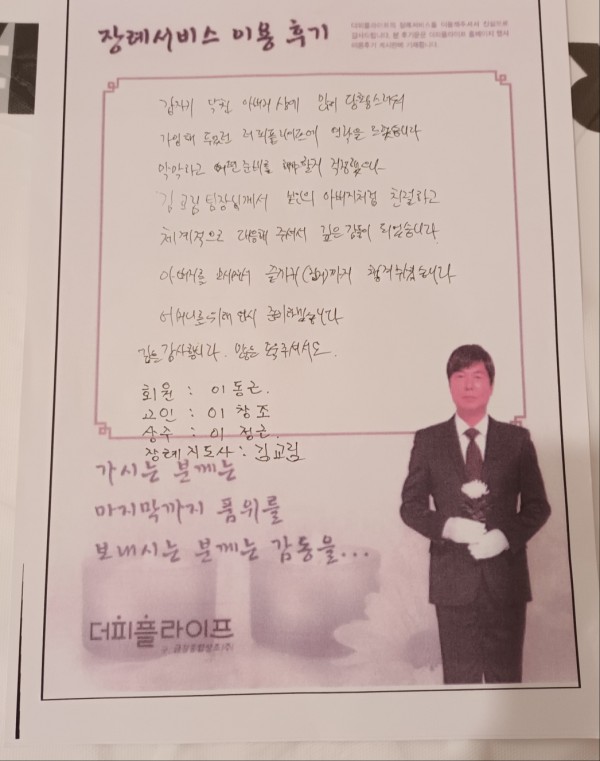 장례서비스 이용 후기
더피플라이프의 장례서비스를 이용해주셔서 진심으로
감사드립니다. 본 후기문은 더피플라이프 홈페이지 행사
이용후기 게시판에 기재됩니다.
갑자기 닥친 아버지 상에 많이 당황스러워
가입해 두었던 더피플라이프에 연락을 드렸습니다
막막하고 어떤 준비를 해야 할지 걱정했으나
김교림 팀장님께서 본인의 아버지처럼 친절하고
체계적으로 대응해 주셔서 깊은 감동이 되었습니다.
아버지를 끝까지 까지 챙겨주셨습니다
어머니를 위해 다시 준비하겠습니다
깊은 감사를 드립니다. 많은 도움 주셔서도.
회원 : 이동근.
고인 : 이창조
상주 : 이정근.
장례지도사 : 김교림
가시는 분께는
마지막까지 품위를
보내시는 분께는 감동을...
더피플라이프